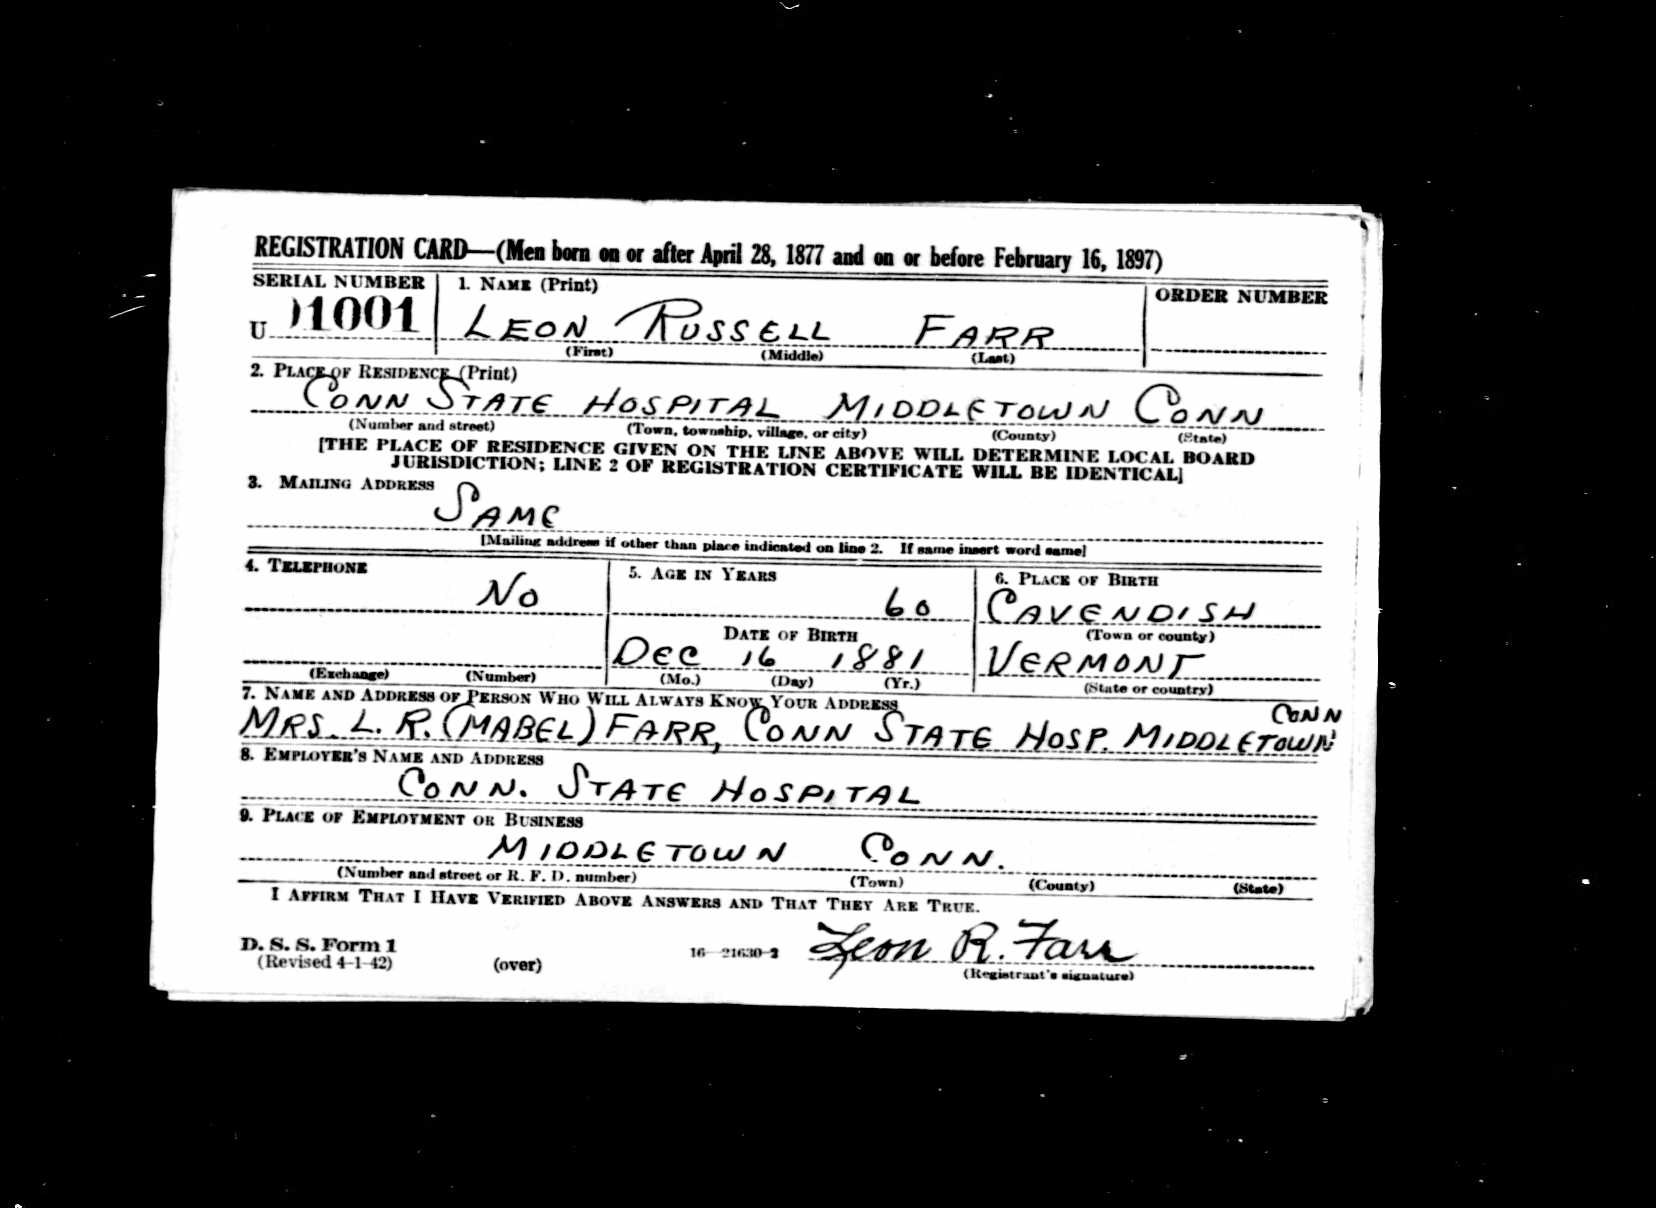 REGISTRATION CARD—(Men born on or after April 28, 1877 and on or before February 16, 1897)
SERIAL NUMBER 1. NAME (Print) ORDER NUMBER
U 1001 LEON RUSSELL FARR
(First) (Middle) (Last)
2. PLACE OF RESIDENCE (Print)
CONN STATE HOSPITAL MIDDLETOWN CONN
(Number and street) (Town, township, village, or city) (County) (State)
[THE PLACE OF RESIDENCE GIVEN ON THE LINE ABOVE WILL DETERMINE LOCAL BOARD
JURISDICTION; LINE 2 OF REGISTRATION CERTIFICATE WILL BE IDENTICAL]
3. MAILING ADDRESS
SAME
[Mailing address if other than place indicated on line 2. If same insert word same]
4. TELEPHONE 5. AGE IN YEARS 6. PLACE OF BIRTH
NO 60 CAVENDISH
DATE OF BIRTH (Town or county)
DEC 16 1881 VERMONT
(Exchange) (Number) (Mo.) (Day) (Yr.) (State or country)
7. NAME AND ADDRESS OF PERSON WHO WILL ALWAYS KNOW YOUR ADDRESS
CONN
MRS. L. R. (MABEL) FARR, CONN STATE HOSP. MIDDLETOWN
8. EMPLOYER'S NAME AND ADDRESS
CONN. STATE HOSPITAL
9. PLACE OF EMPLOYMENT OR BUSINESS
MIDDLETOWN CONN.
(Number and street or R. F. D. number) (Town) (County) (State)
I AFFIRM THAT I HAVE VERIFIED ABOVE ANSWERS AND THAT THEY ARE TRUE.
D. S. S. Form 1 16—21630-2 Leon R. Farr
(Revised 4-1-42) (over) (Registrant's signature)